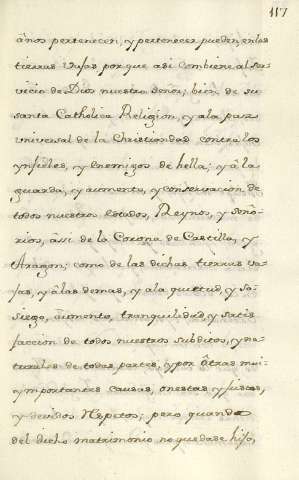 117
años pertenecen, y pertenecer pueden, en las
tierras Vajas porque asi combiene al Ser-
vicio de Dios nuestro Señor; bien de su
santa Catholica Religion, y a la paz
universal de la Christiandad contra los
ynfieles, y Enemigos de hella; y â la
guarda, y aumento, y conservacion de
todos nuestros Estados, Reynos, y seño-
rios, assi de la Corona de Castilla, y
Aragon; como de las dichas tierras Va-
jas, y âlas demas, y ala quietud, y so-
siego, aûmento, tranquilidad, y satis
faccion de todos nuestros subditos, y na-
turales de todas partes, y por ôtras mui
ymportantes causas, onestas y justas,
y devidos Respetos; pero quando
del dicho matrimonio no quedase hijo,